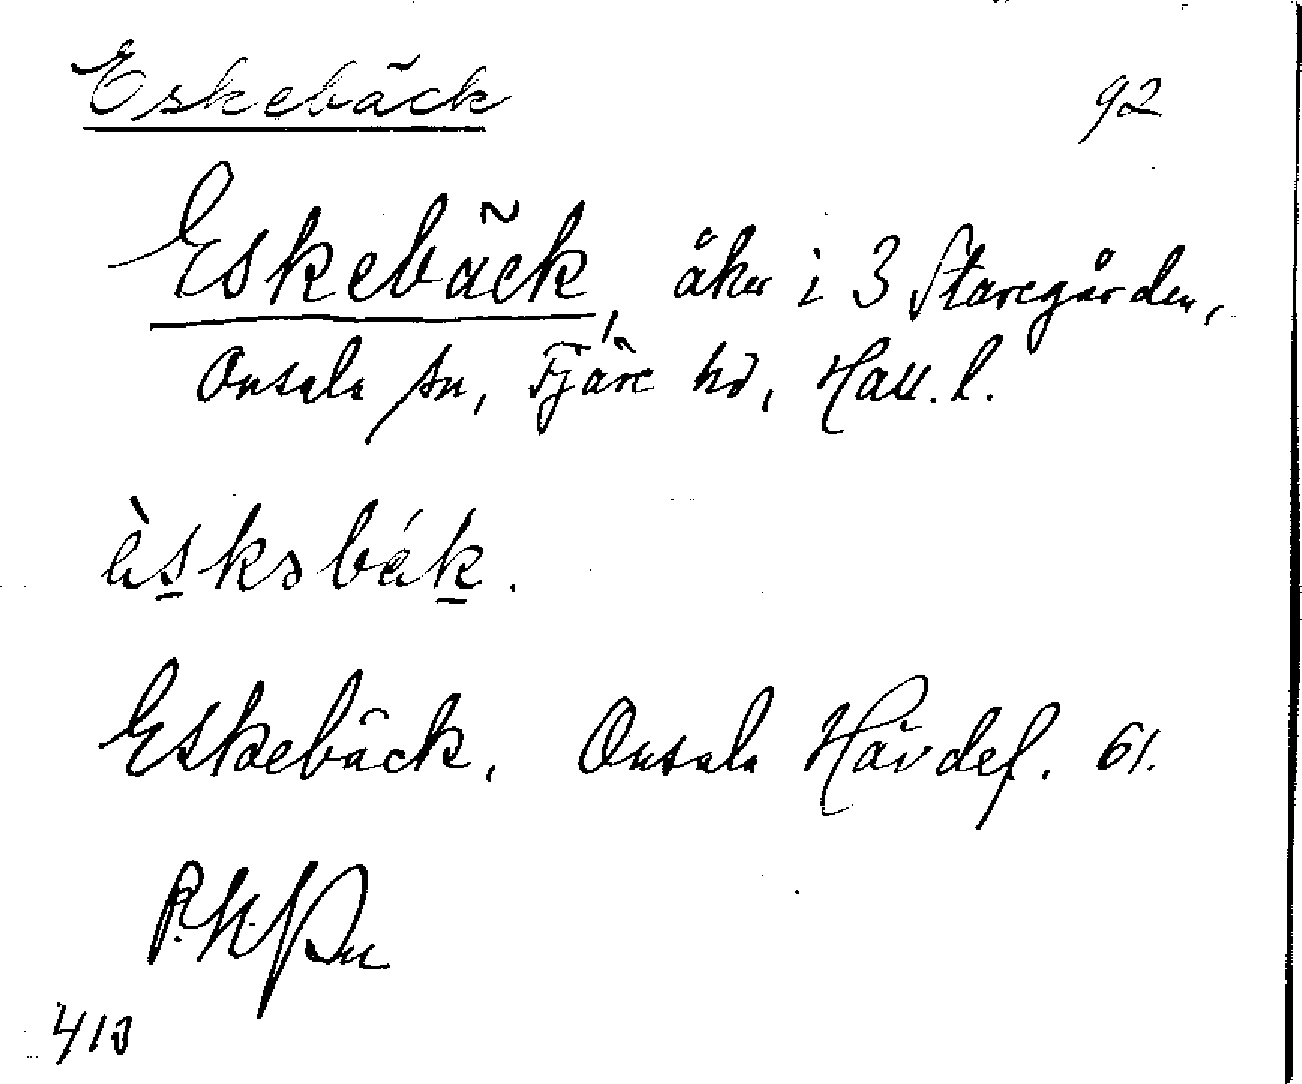 Eskebäck 92
Eskebäck, åker i 3 Staregården,
Onsala sn, Fjäre hd, Hall. l.
èskəbák.
Eskebäck, Onsala Hävdef. 61.
413